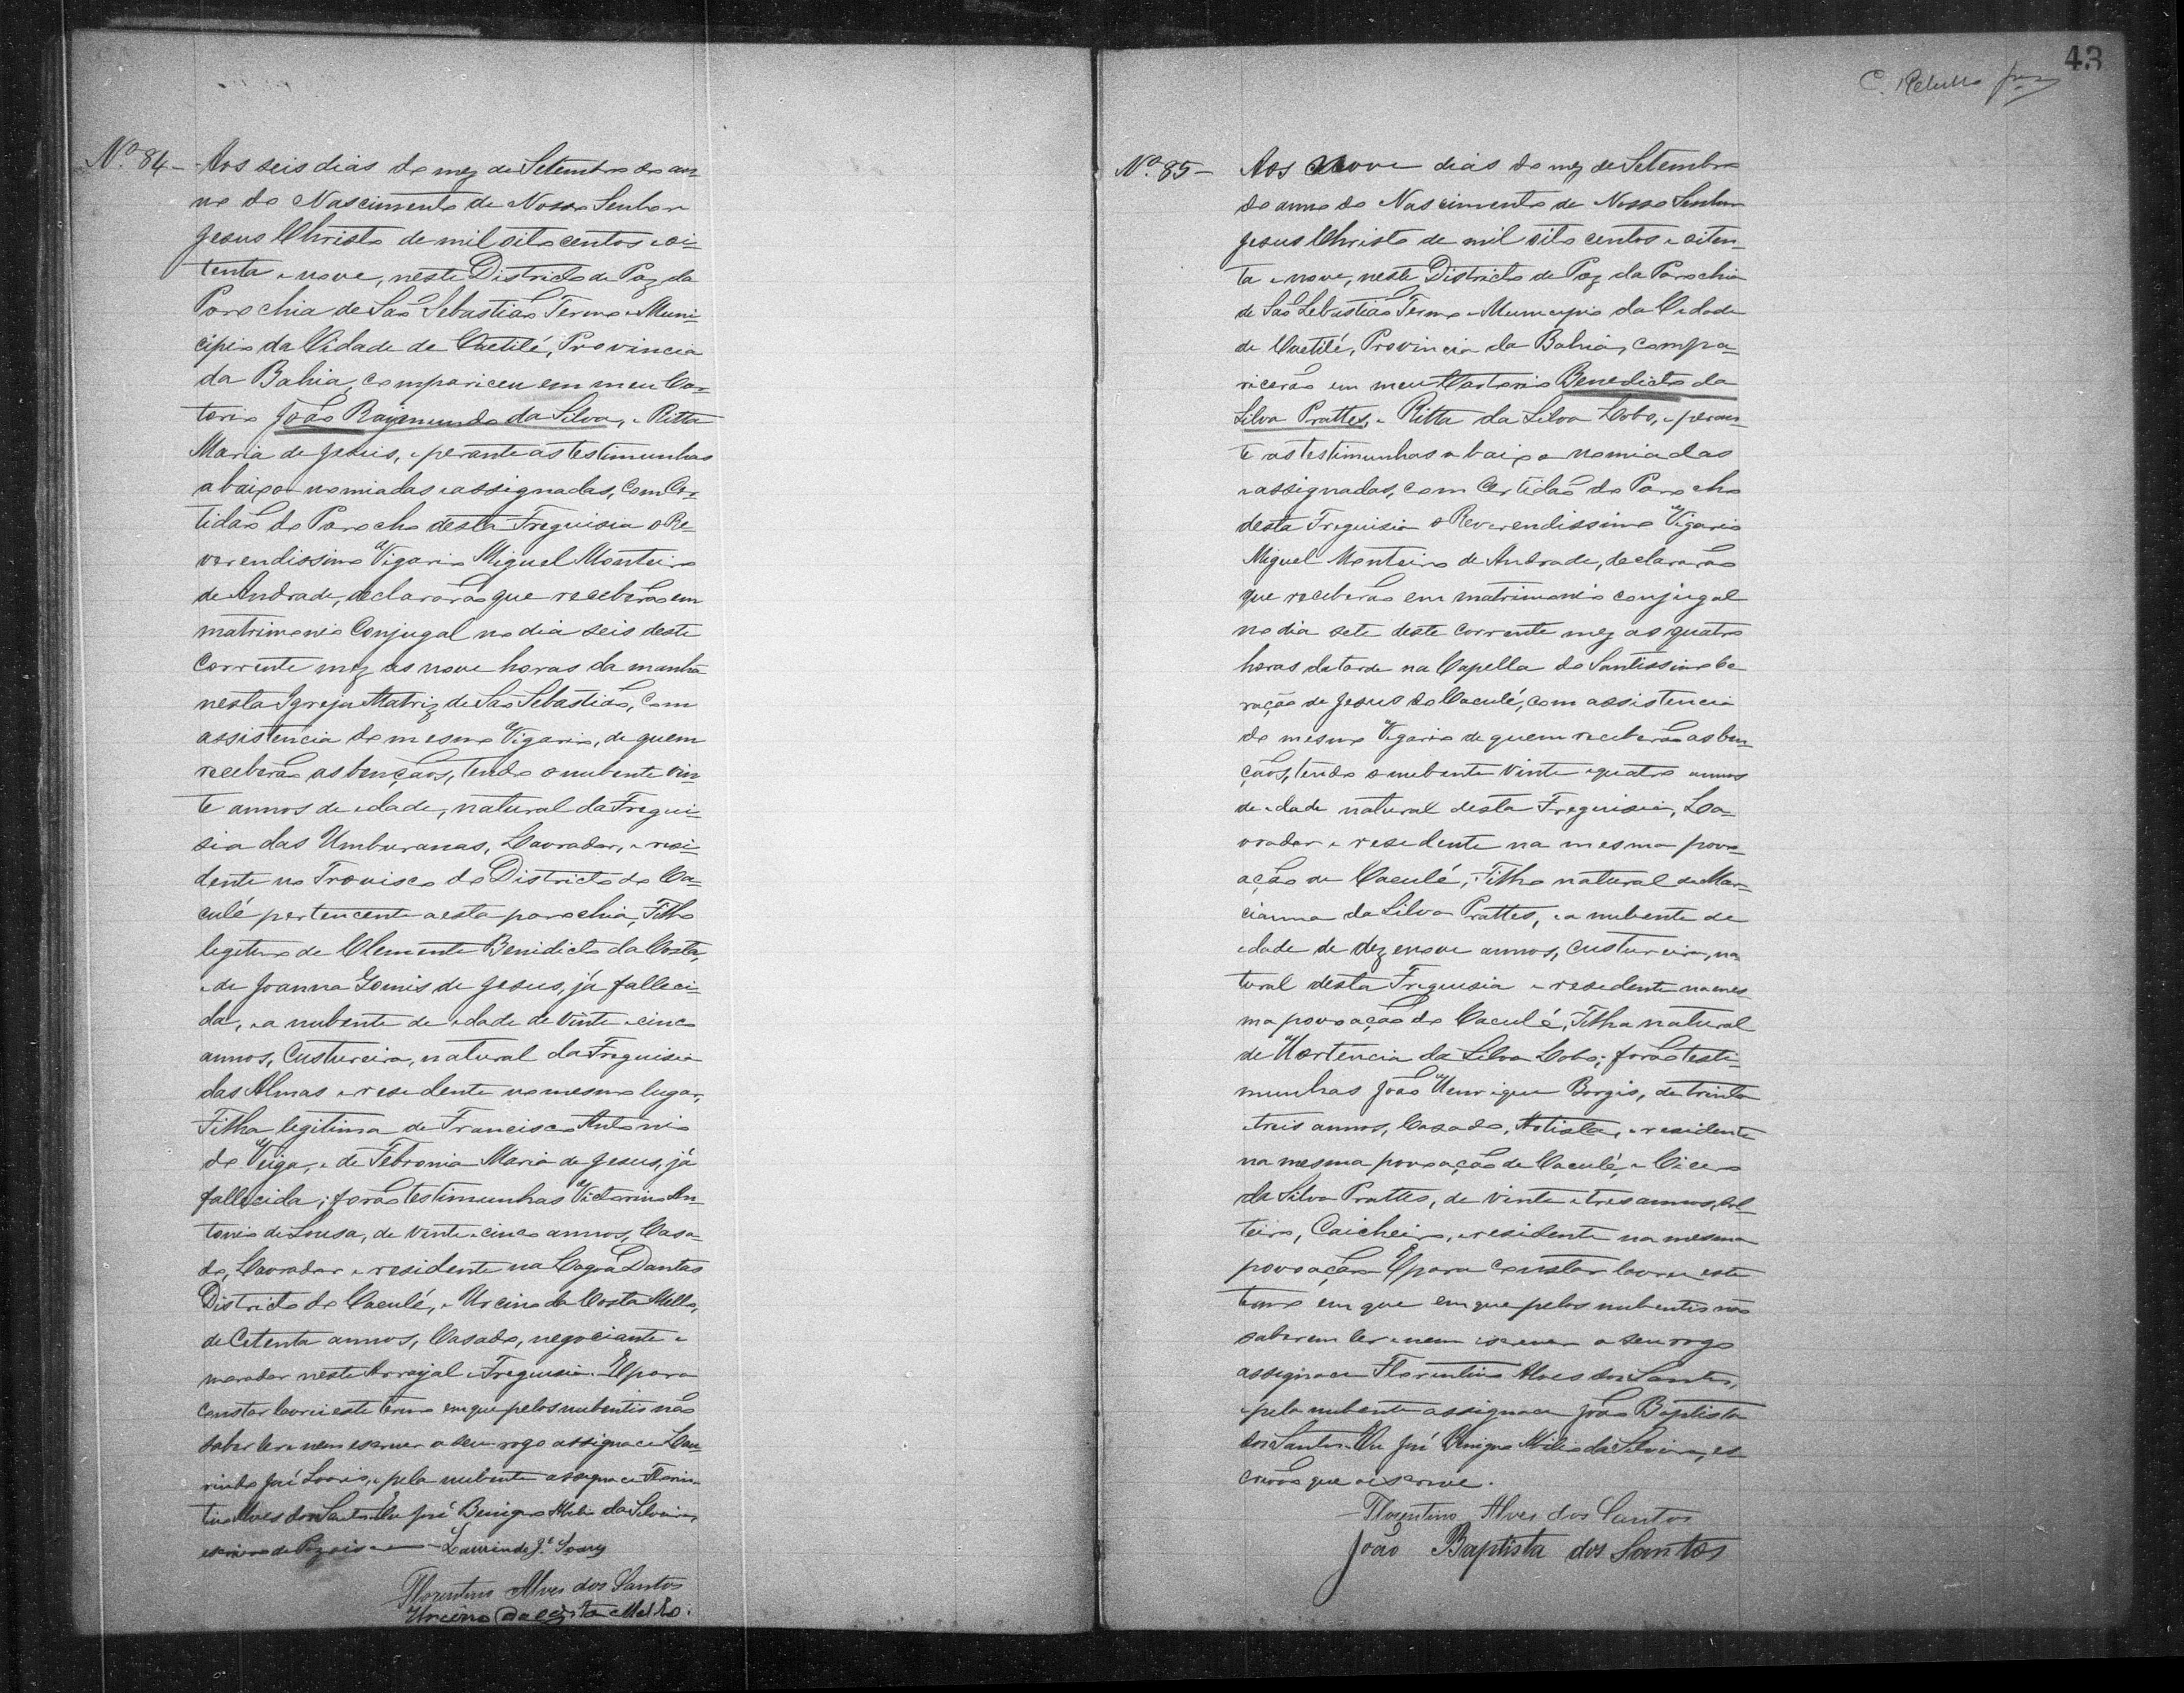 Nº 84 - Aos seis dias do mez de Setembro do an-
no do Nascimento de Nosso Senhor
Jesus Christo de mil oito centos e oi-
tenta e nove, neste Districto de Paz da
Parochia de São Sebastião Termo e Muni-
cipio da Cidade de Caetité, Provincia
da Bahia, compariceu em meu Car-
torio João Raymundo da Silva, e Ritta
Maria de Jesuis, e perante as testimunhas
abaixo nomiadas e assignadas, com Cer-
tidão do Parocho desta Freguisia o Re-
verendissimo Vigario Miguel Monteiro
de Andrade, declararão que receberão em
matrimonio Conjugal no dia seis deste
Corrente mez as nove horas da manhã
nesta Igreja Matriz de São Sebastião, com
assistencia do mesmo Vigario, de quem
receberão as bençãos, tendo o nubente vin-
te annos de edade, natural da Fregui-
sia das Umburanas, Lavrador, e resi-
dente no Trovisco do Districto do Ca-
culé pertencente a esta parochia, Filho
legitimo de Clemente Benidicto da Costa,
e de Joanna Gomis de Jesus, já falleci-
da, e a nubente de edade de vinte e cinco
annos, Custureira, natural da Freguisia
das Almas e residente no mesmo lugar,
Filha legitima de Francisco Antonio
da Veiga, e de Febronia Maria de Jesus, já
fallecida; forão testimunhas Victorino An-
tonio de Sousa, de vinte e cinco annos, Casa-
do, Lavrador e residente na Lagôa Dantas
Districto do Caculé, e Urcino da Costa Mello,
de Cetenta annos, Casado, negociante e
morador neste Arrayal e Freguisia. E para
constar lavrei este termo em que pelos nubentis não
saber ler e nem escrever a seu rogo assignace Lau-
rindo José Soares, e pela nubente assignace Floren-
tino Alves dos Santos. Eu José Benigno Abilio da Silveira,
escrivão de Paz Laurindo Je. Soares
Florentino Alves dos Santos
Urcino da Costa Mello.
43
C.
Nº 85 - Aos nove dias do mez de Setembro
do anno do Nascimento de Nosso Senhor
Jesus Christo de mil oito centos e oiten-
ta e nove, neste Districto de Paz da Parochia
de São Sebastião Termo e Municipio da Cidade
de Caetité, Provincia da Bahia, compa-
ricerão em meu Cartorio Benedicto da
Silva Prattes, e Ritta da Silva Lobo, e peran-
te as testimunhas abaixo nomiadas
e assignadas, com Certidão do Parocho
desta Freguisia o Reverendissimo Vigario
Miguel Monteiro de Andrade, declararão
que receberão em matrimonio conjugal
no dia sete deste Corrente mez as quatro
horas da tarde na Capella do Santissimo Co
ração de Jesus do Caculé, com assistencia
do mesmo Vigario de quem receberão as ben-
çãos, tendo o nubente vinte e quatro annos
de edade natural desta Freguisia, La-
vrador e residente na mesma povo-
ação de Caculé, Filho natural de Mar-
cianna da Silva Prattes, e a nubente de
edade de dezenove annos, custureira, na
tural desta Freguisia e residente na mes
ma povoação do Caculé, Filha natural
de Hortencia da Silva Lobo; forão testi-
munhas João Henrique Borgis, de trinta
e treis annos, Casado, Artista, e residente
na mesma povoação de Caculé, e Cicero
da Silva Prattes, de vinte e tres annos, Sol-
teiro, Caicheiro, e residente na mesma
povoação E para constar lavrei este
termo em que em que pelos nubentis não
saberem ler e nem escrever a seu rogo
assignace Florentino Alves dos Santos,
e pela nubente assignace João Baptista
dos Santos. Eu José Benigno Abilio da Silveira, es-
crivão que o iscrive.
Florentino Alves dos Santos
João Baptista dos Santos